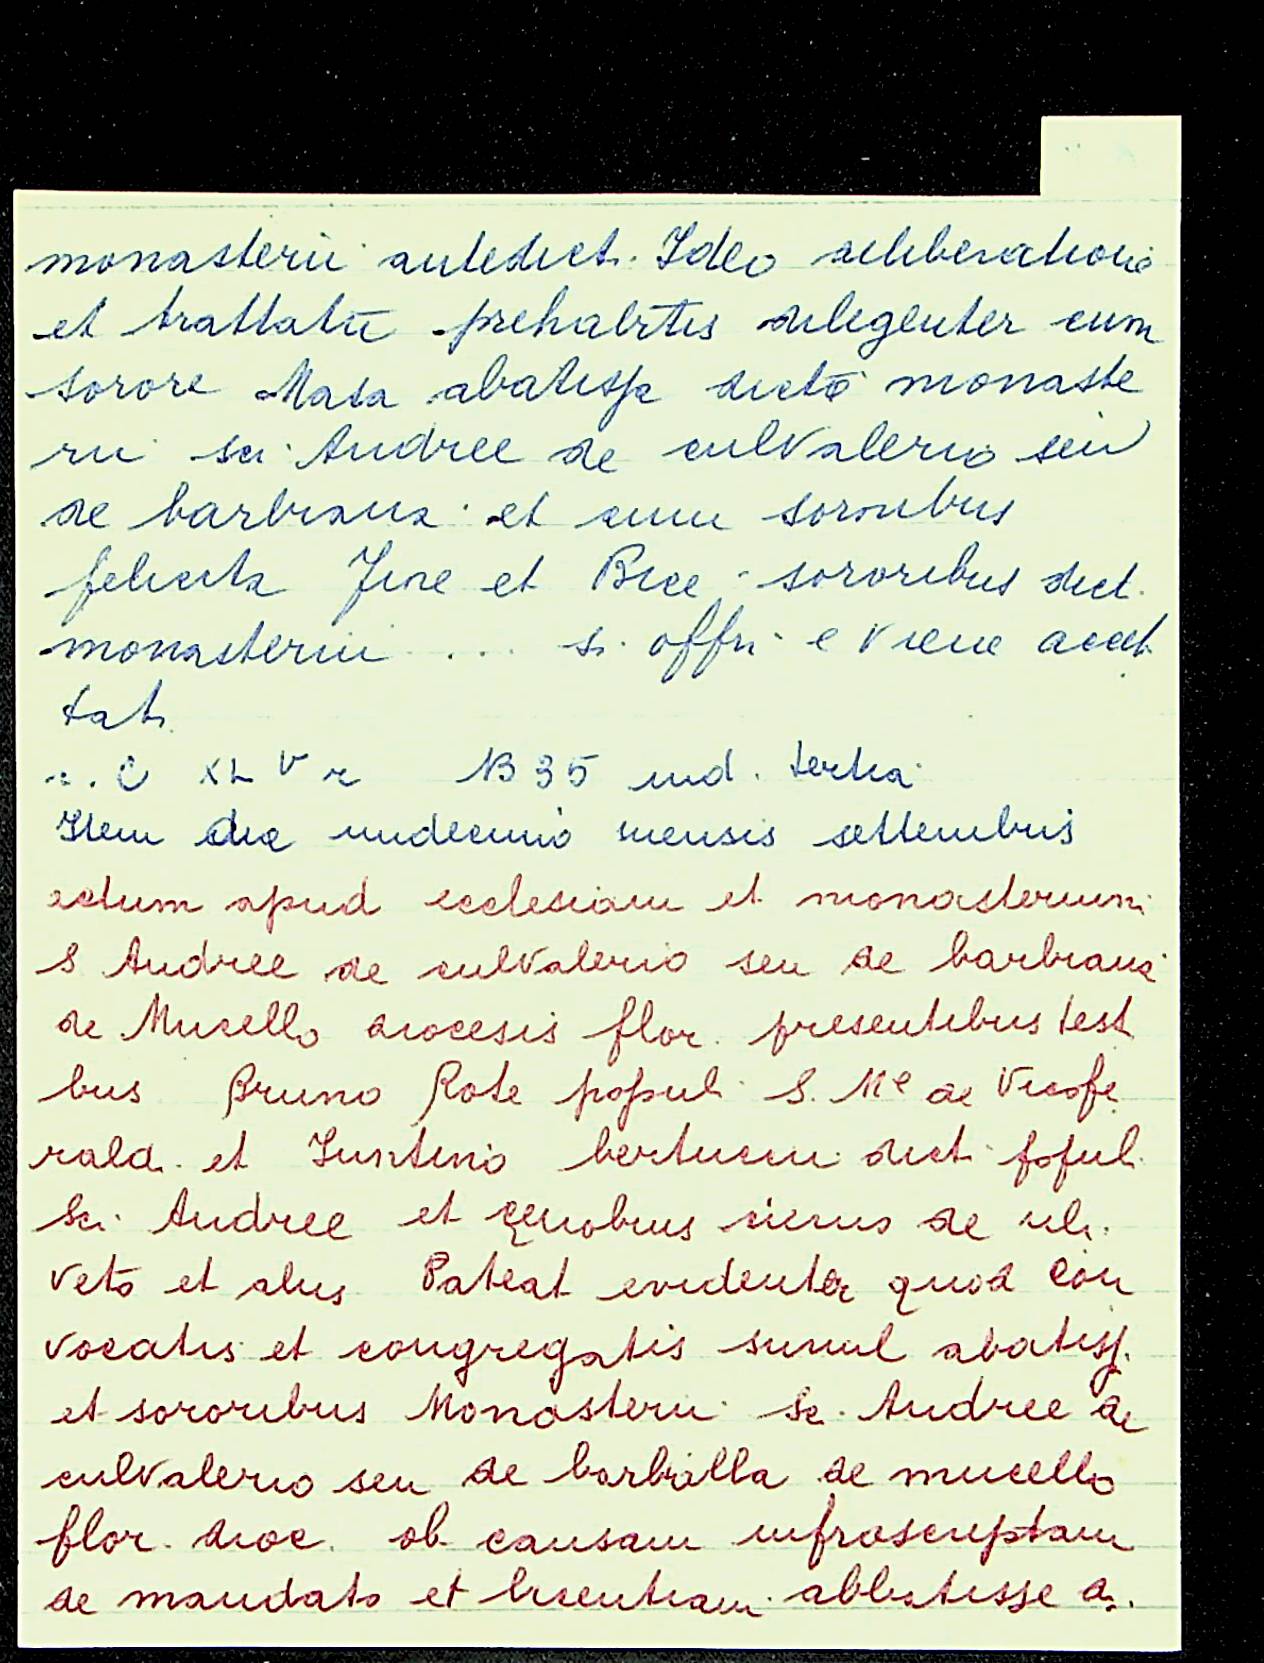 monasterii antedict. Ideo deliberatione
et trattatu prehabitis diligenter cum
sorore Masa abatissa dicto monaste
rii sci Andree de culvalerio seu
de barbiana et cum sororibus
felicita Jine et Bice sororibus dict.
monasterii ... si offri e viene accet
tat.
1335 ind. tertia
Item die undecimo mensis settembris
actum apud ecclesiam et monasterium
S Andree de culvalerio seu de barbiana
de Mucello diocesis flor. presentibus testi
bus Bruno Rote populi S. Me de Vicofe
rald. et Juntino bertucci dict. poful.
Sci Andree et de uli
veto et aliis Pateat evidenter quod con
vocatis et congregatis simul abatiss.
et sororibus Monasterii Sc. Andree de
culvalerio seu de barbialla de mucello
flor. dioc. ob causam infrascriptam
de mandato et licentiam abbatisse d.